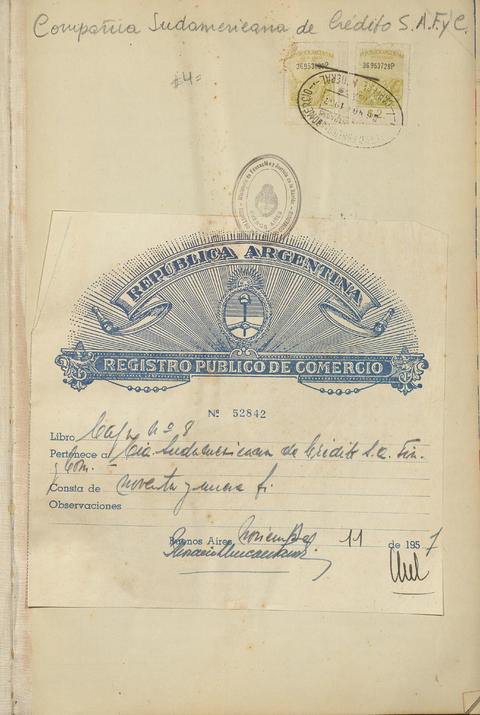 Compañia Sudamericana de Crédito S.A.F.yC.
#4=
36953728P
REPUBLICA ARGENTINA
REGISTRO PUBLICO DE COMERCIO
Nº 52842
Libro Caja Nº 8
Pertenece a Cia Sudamericana de Crédito S.A. Fin.
y Com.
Consta de noventa y nueve
Observaciones
Buenos Aires, Noviembre 11 de 1957